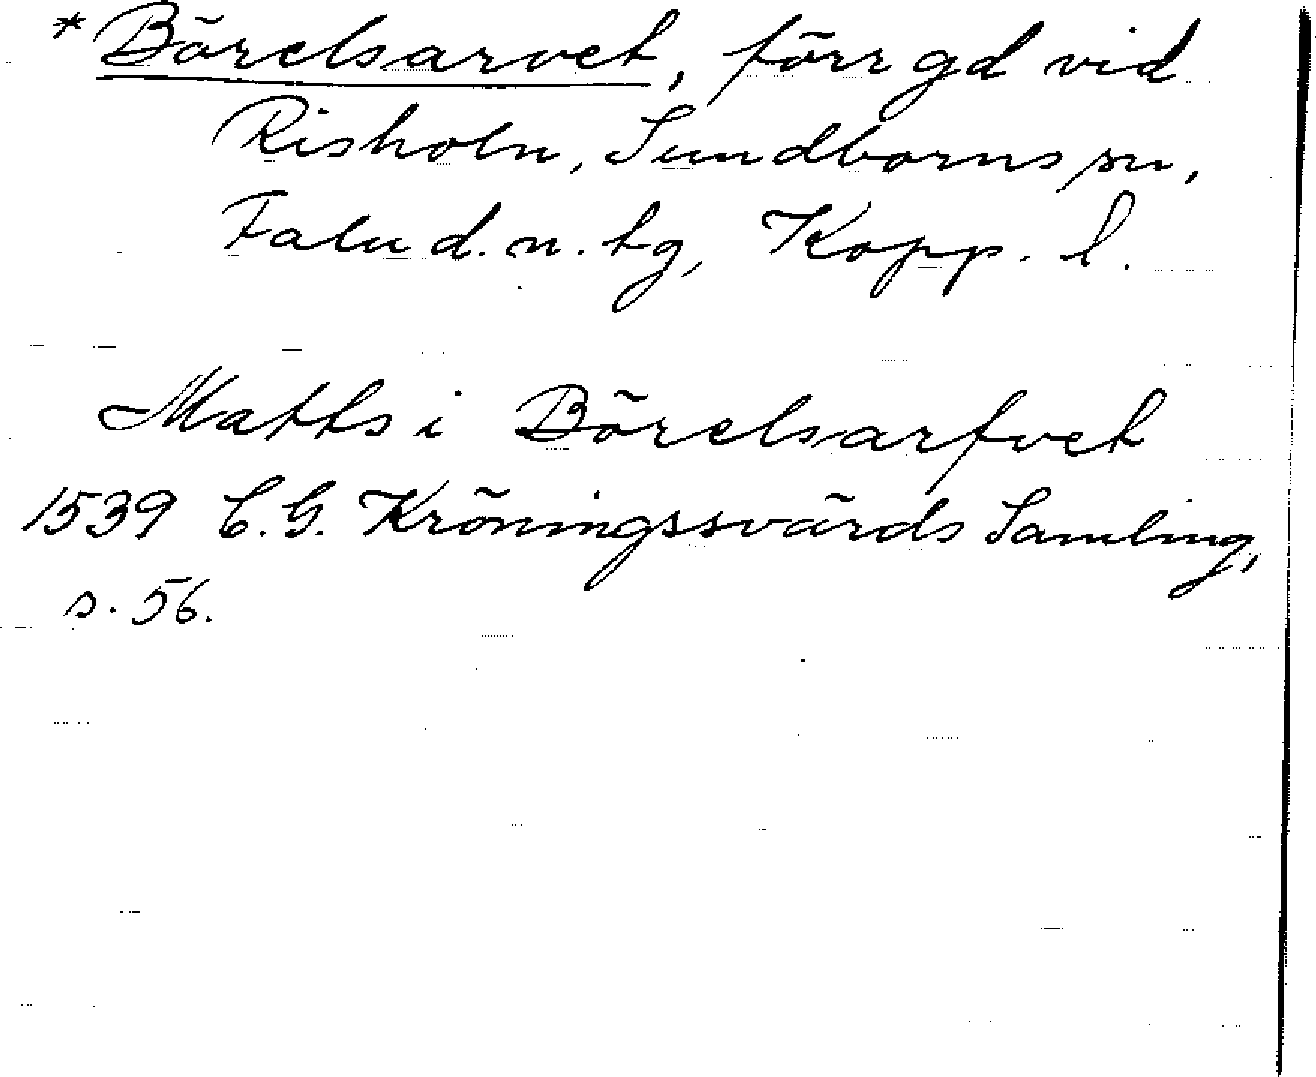 *Börelsarvet, förr gd vid
Risholn, Sundborns sn,
Falu d. n. tg, Kopp. l.
Matts i Börelsarfvet
1539 C. G. Kröningssvärds Samling,
s. 56.